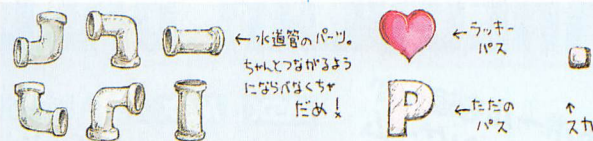 ←水道管のパーツ。
ちゃんとつながるよう
にならべなくちゃ
だめ!
←ラッキー
パス
P
←ただの
パス
↑
スカ